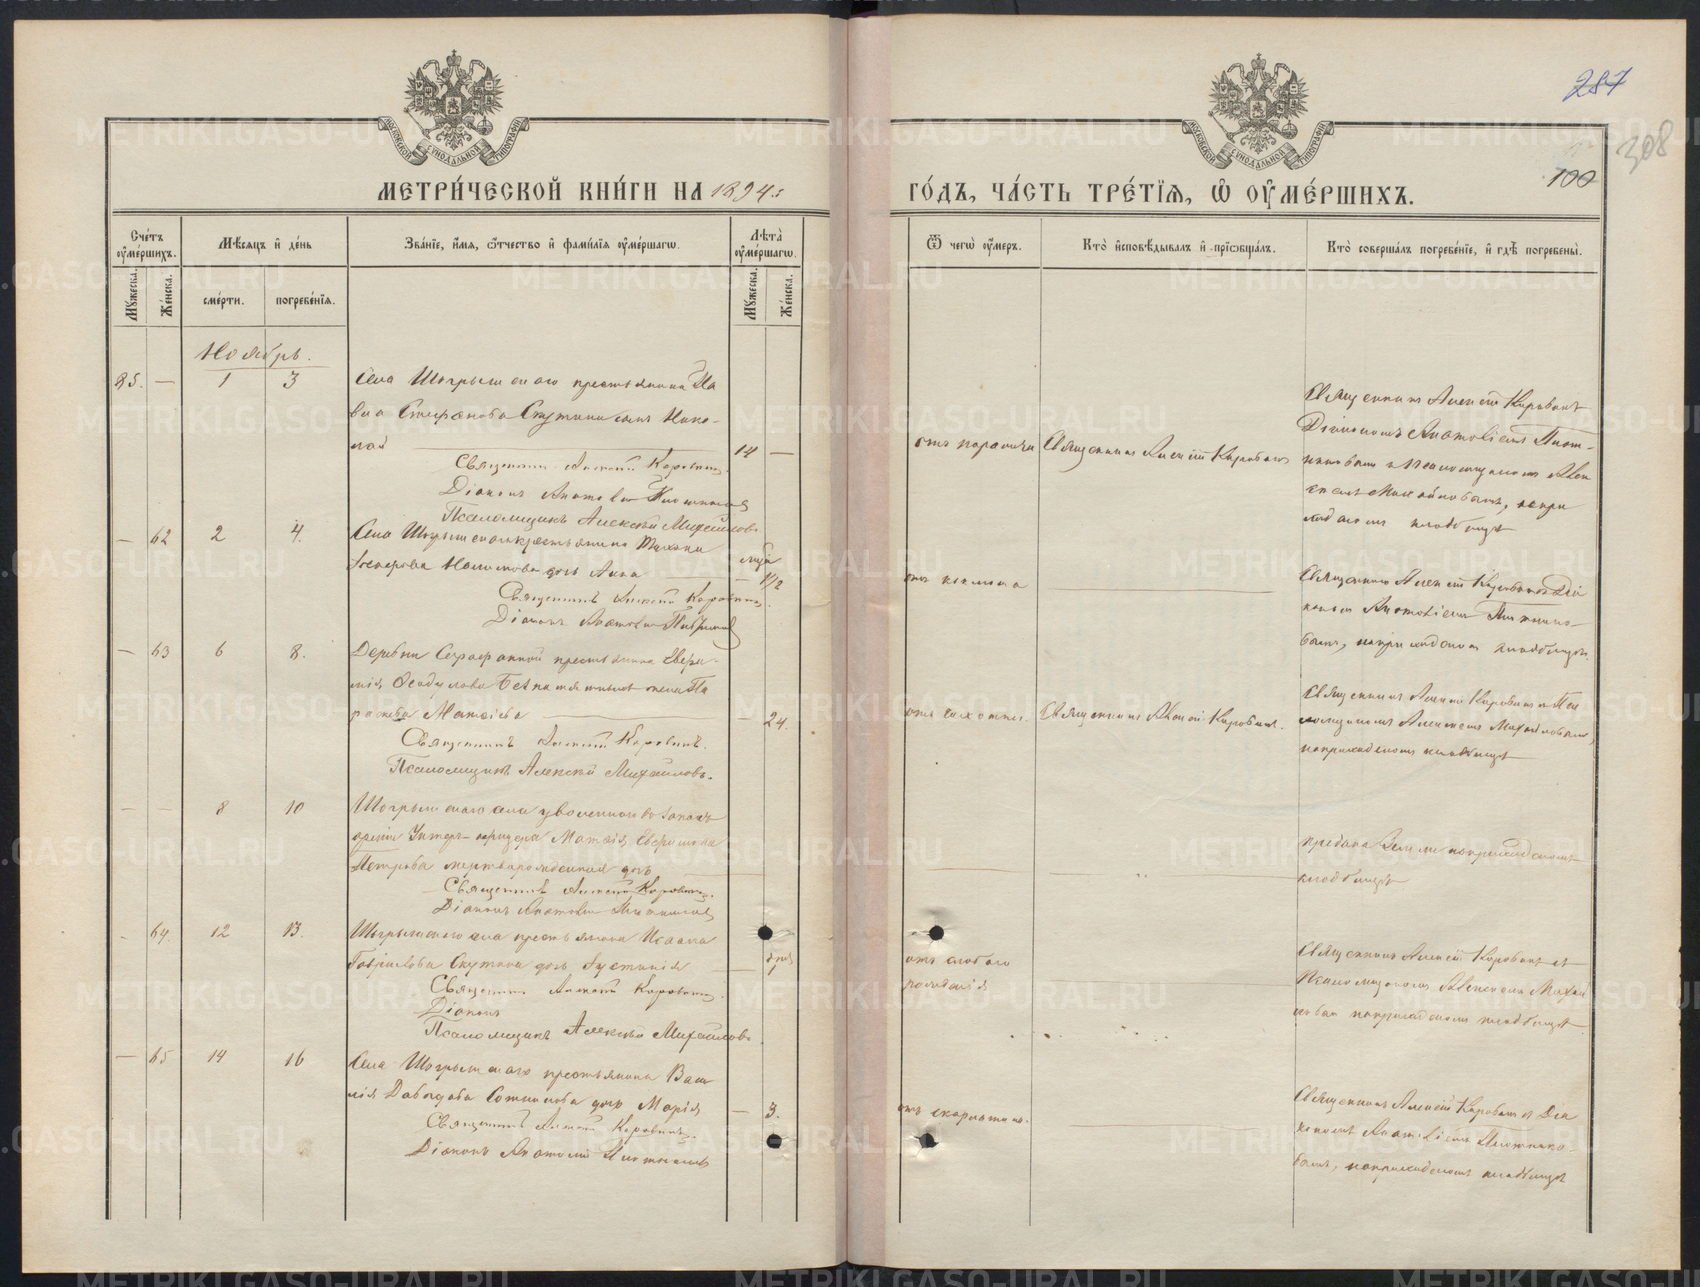 287
308
100
МОСКОВСКОЙ СѴНОДАЛЬНОЙ ТИПОГРАФІИ
МОСКОВСКОЙ СѴНОДАЛЬНОЙ ТИПОГРАФІИ
МЕТРИ́ЧЕСКОЙ КНИ́ГИ НА 1894 г.
ГО́ДЪ, ЧА́СТЬ ТРЕ́ТЇѦ, Ѡ҆ ОУ҆МЕ́РШИХЪ.
Сче́тъ оу҆ме́ршихъ.
Мꙋжеска.
Же́нска.
Мѣ́сяцъ и҆ де́нь
сме́рти.
погребе́нїѧ.
Зва́нїе, и҆́мѧ, ѻ҆́тчество и҆ фами́лїѧ оу҆ме́ршагѡ.
Лѣ́та оу҆ме́ршагѡ.
Мꙋжеска.
Же́нска.
Ѿ чегѡ̀ оу҆́меръ.
Кто̀ и҆сповѣ́дывалъ и҆ прїѻбща́лъ.
Кто̀ соверша́лъ погребе́нїе, и҆ гдѣ̀ погребены̀.
Ноябрь.
85. — 1 3
Села Шогрышскаго крестьянина Па
вла Стефанова Скутина сынъ Нико-
лай 14 —
Священникъ Алексій Коровинъ.
Діаконъ Анатолій Плотниковъ
Псаломщикъ Алексѣй Михайловъ
отъ горячки
Священникъ Алексій Коровинъ
Священникъ Алексій Коровинъ съ
Діакономъ Анатоліемъ Плот-
никовымъ и Псаломщикомъ Алек
сѣемъ Михайловымъ, на при
ходскомъ кладбищѣ
— 62 2 4.
Села Шогрышскаго крестьянина
дочь Анна — 1/2
Священникъ Алексій Коровинъ.
Діаконъ Анатолій Плотниковъ
Священникъ Алексій Коровинъ съ Діа
кономъ Анатоліемъ Плотнико-
вымъ, на приходскомъ кладбищѣ.
— 63 6 8.
Деревни крестьянина
жена Па
раскева Матѳіева — 24.
Священникъ Алексій Коровинъ.
Псаломщикъ Алексѣй Михайловъ.
отъ чахотки.
Священникъ Алексій Коровинъ.
Священникъ Алексій Коровинъ и Пса
ломщикомъ Алексѣемъ Михайловымъ,
на приходскомъ кладбищѣ
— — 8 10
Шогрышскаго села уволеннаго въ запасъ
арміи Унтеръ-офицера Матѳія
Петрова мертворожденная дочь
Священникъ Алексій Коровинъ.
Діаконъ Анатолій Плотниковъ
предана землѣ на приходскомъ
кладбищѣ
- 64. 12 13.
Шогрышскаго села крестьянина Исаака
Гавріилова Скутина дочь Іустинія
Священникъ Алексій Коровинъ.
Діаконъ
Псаломщикъ Алексѣй Михайловъ
отъ слабаго
рожденія
Священникъ Алексій Коровинъ съ
Псаломщикомъ Алексѣемъ Михай
ловымъ на приходскомъ кладбищѣ.
— 65 14 16
Села Шогрышскаго крестьянина Васи
лія Давыдова дочь Марія — 3.
Священникъ Алексій Коровинъ.
Діаконъ Анатолій Плотниковъ
отъ скарлатины.
Священникъ Алексій Коровинъ съ Діа
кономъ Анатоліемъ Плотнико-
вымъ, на приходскомъ кладбищѣ
METRIKI.GASO-URAL.RU